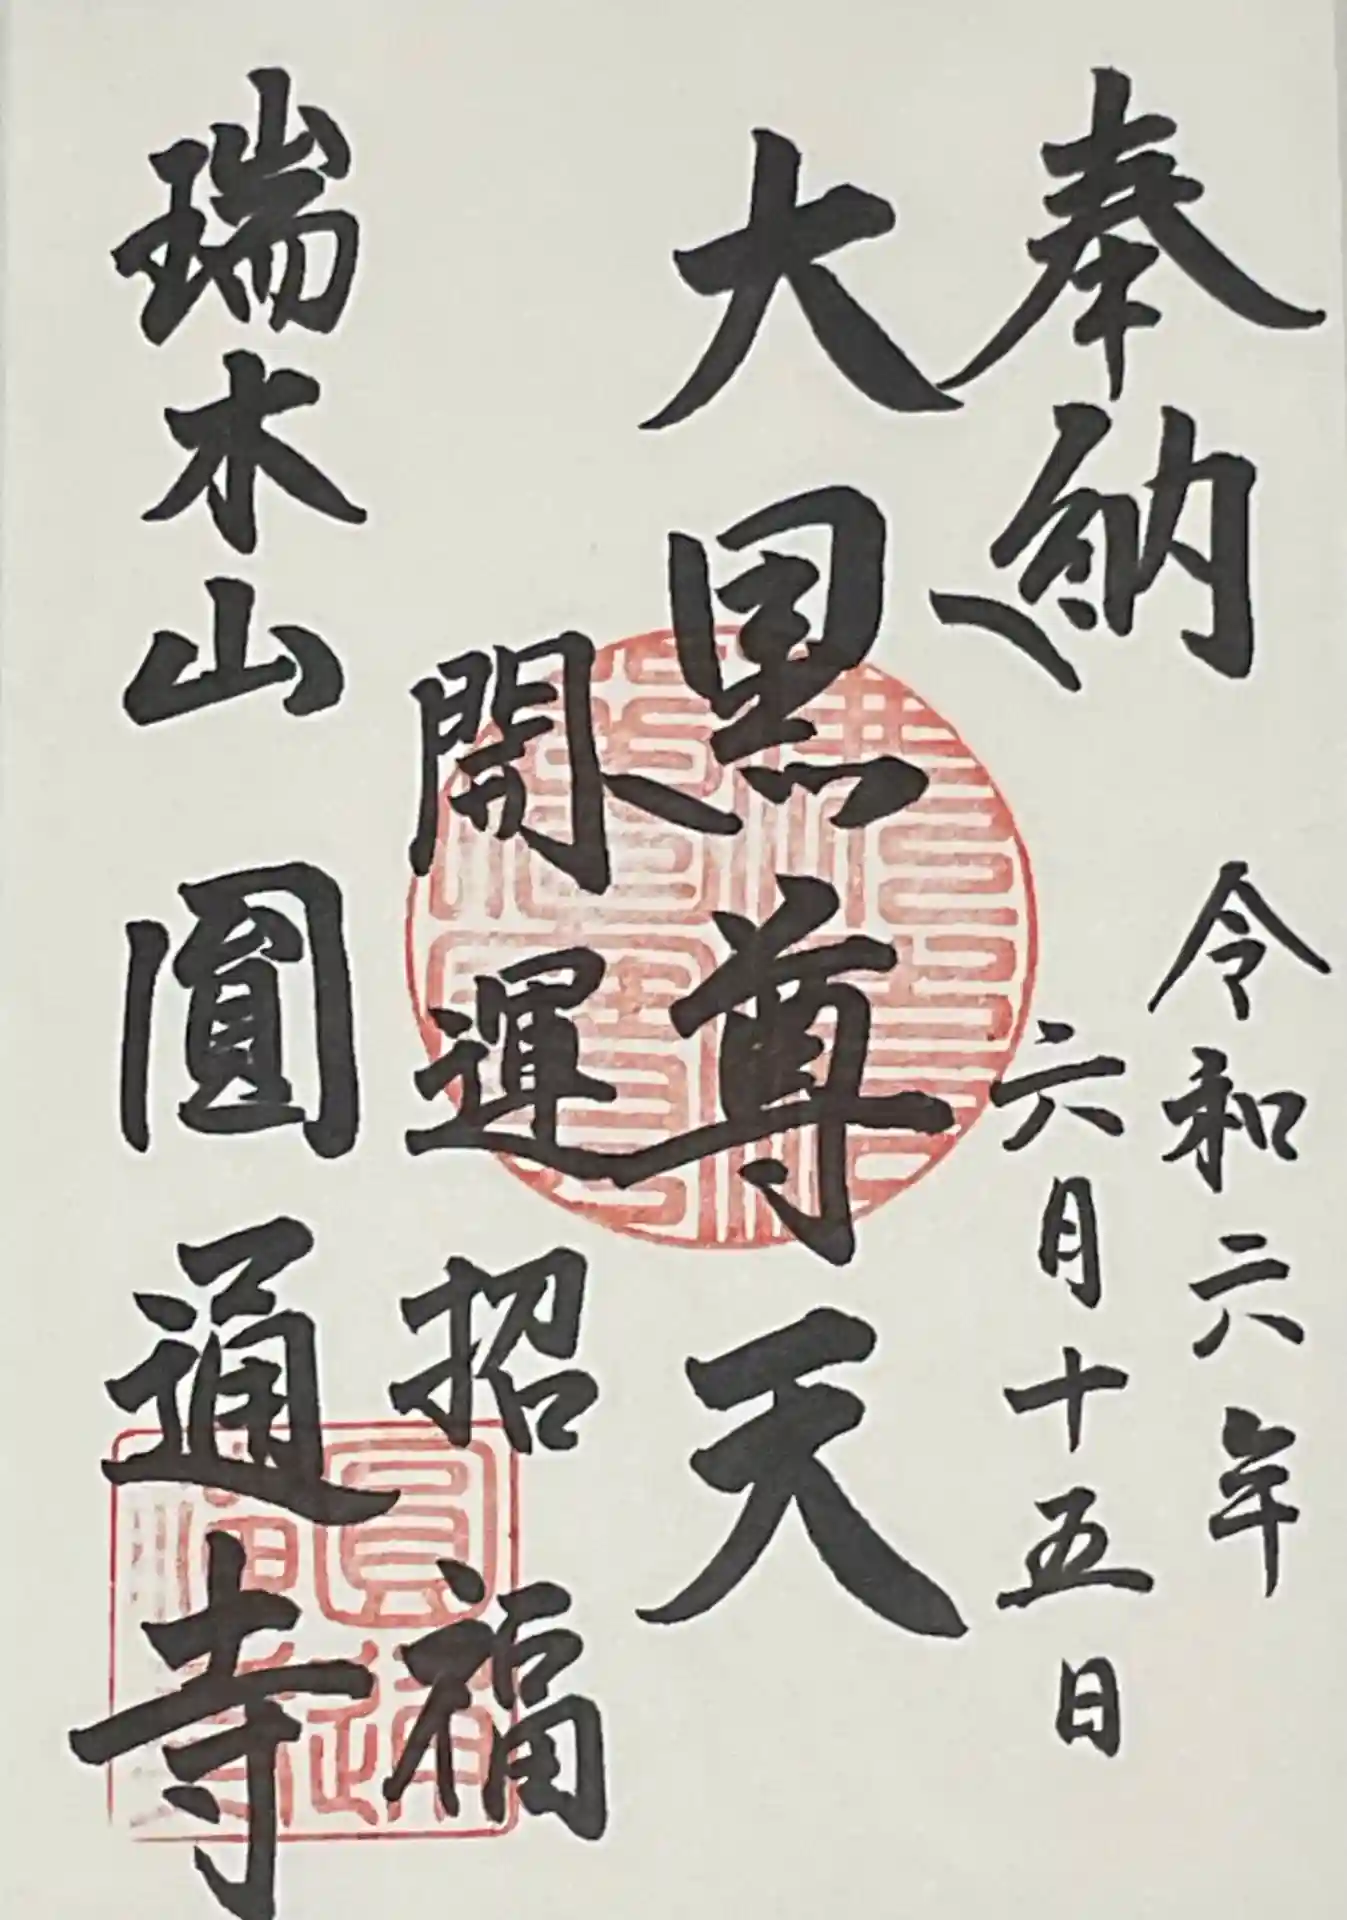 奉納
令和六年
六月十五日
大黒尊天
開運招福
瑞木山圓通寺